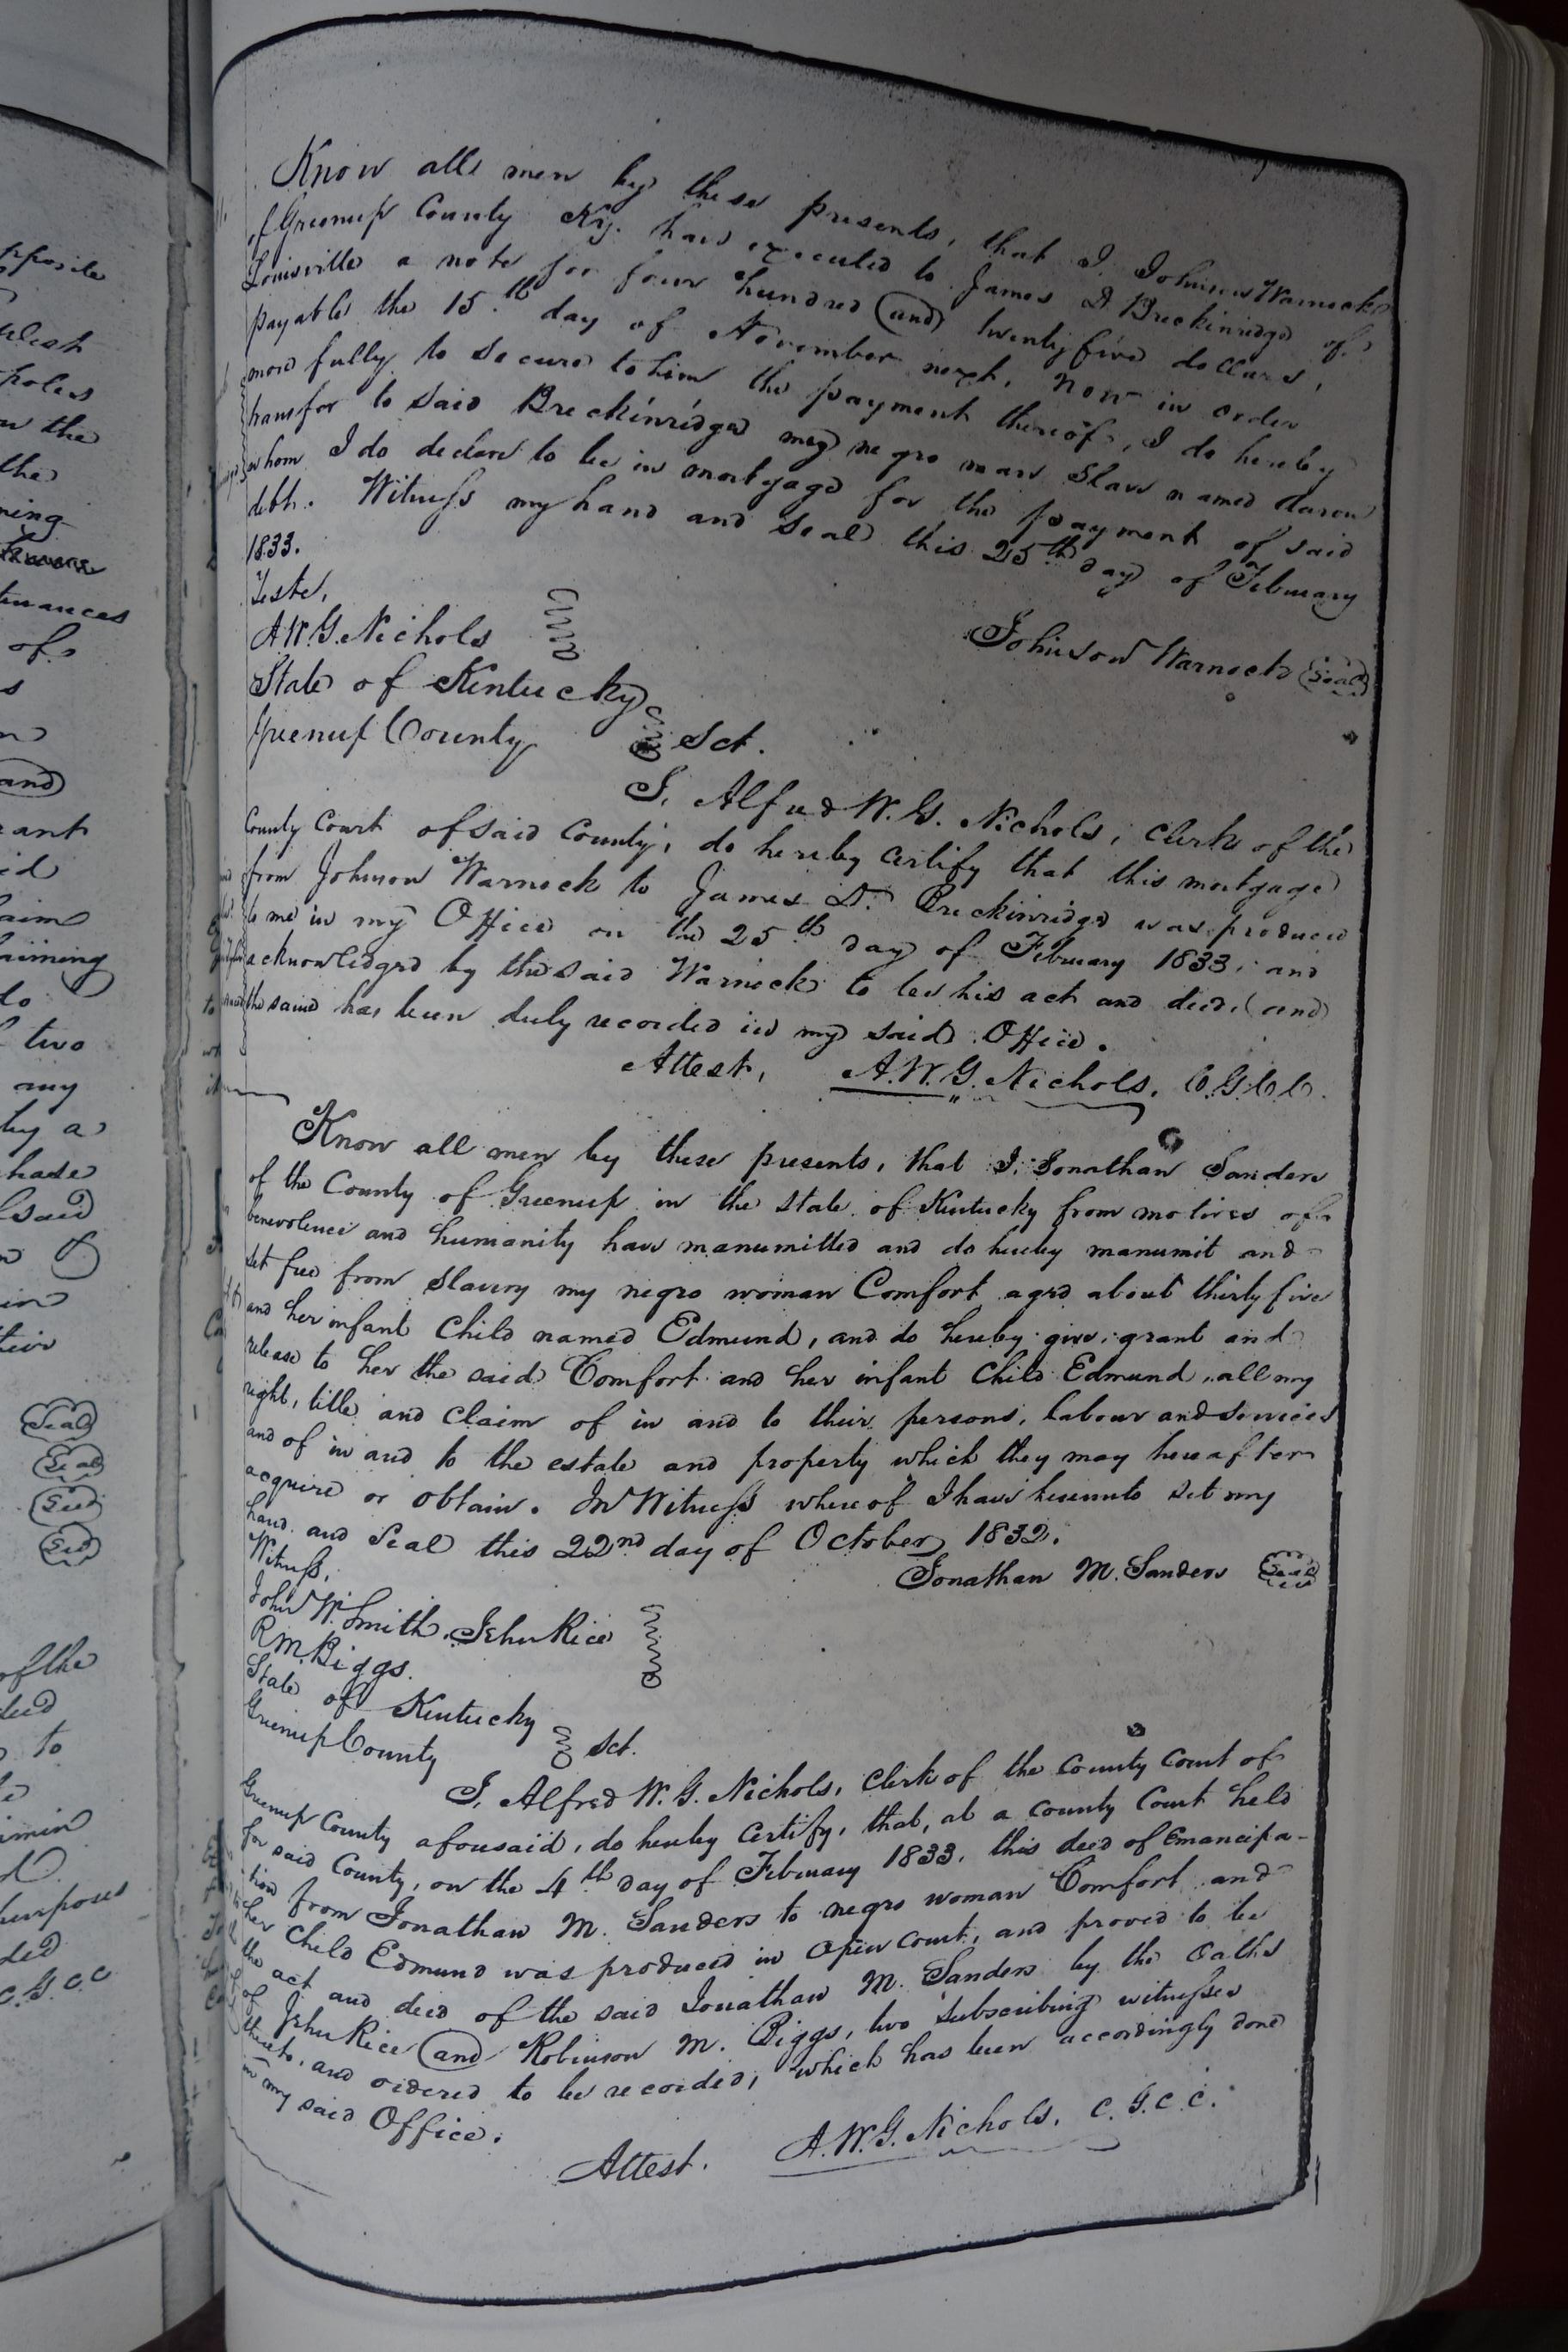 Know all men by these presents, that I Johnson Warnock
of Greenup County Ky. have executed to James D. Breckinridge of
Louisville a note for four hundred (and) twenty five dollars,
payable the 15th day of November next. Now in order
more fully to secure to him the payment thereof, I do hereby
transfer to said Breckinridge my negro man slave named Aaron
whom I do declare to be in mortgage for the payment of said
debt. Witness my hand and seal this 25th day of February
1833.
Teste,
A W. G. Nichols
Johnson Warnock (Seal)
State of Kentucky
Greenup County Sct.
I, Alfred W. G. Nichols, clerk of the
County Court of said County, do hereby certify that this mortgage
from Johnson Warnock to James D. Breckinridge was produced
to me in my Office on the 25th day of February 1833, and
acknowledged by the said Warnock to be his act and deed, (and)
the same has been duly recorded in my said Office.
Attest, A. W. G. Nichols. C. G. C. C.
Know all men by these presents, that I, Jonathan Sanders
of the County of Greenup in the state of Kentucky from motives of
benevolence and humanity have manumitted and do hereby manumit and
set free from slavery my negro woman Comfort aged about thirty five
and her infant Child named Edmund, and do hereby give, grant and
release to her the said Comfort and her infant Child Edmund, all my
right, title and claim of in and to their persons, labour and services
and of in and to the estate and property which they may hereafter
acquire or obtain. In Witness whereof I have hereunto set my
hand and Seal this 22nd day of October 1832.
Jonathan M. Sanders Seal
Witness,
John W. Smith. Jehu Rice
R M. Biggs.
State of Kentucky
Greenup County Sct.
I, Alfred W. G. Nichols, Clerk of the County Court of
Greenup County aforesaid, do hereby Certify, that, at a County Court held
for said County, on the 4th day of February 1833, this deed of Emancipa-
tion from Jonathan M. Sanders to negro woman Comfort and
her Child Edmund was produced in Open Court, and proved to be
the act and deed of the said Jonathan M. Sanders by the Oaths
of Jehu Rice (and) Robinson M. Biggs, two subscribing witnesses
thereto, and ordered to be recorded, which has been accordingly done
in my said Office.
Attest. A. W. G. Nichols, C. G. C. C.